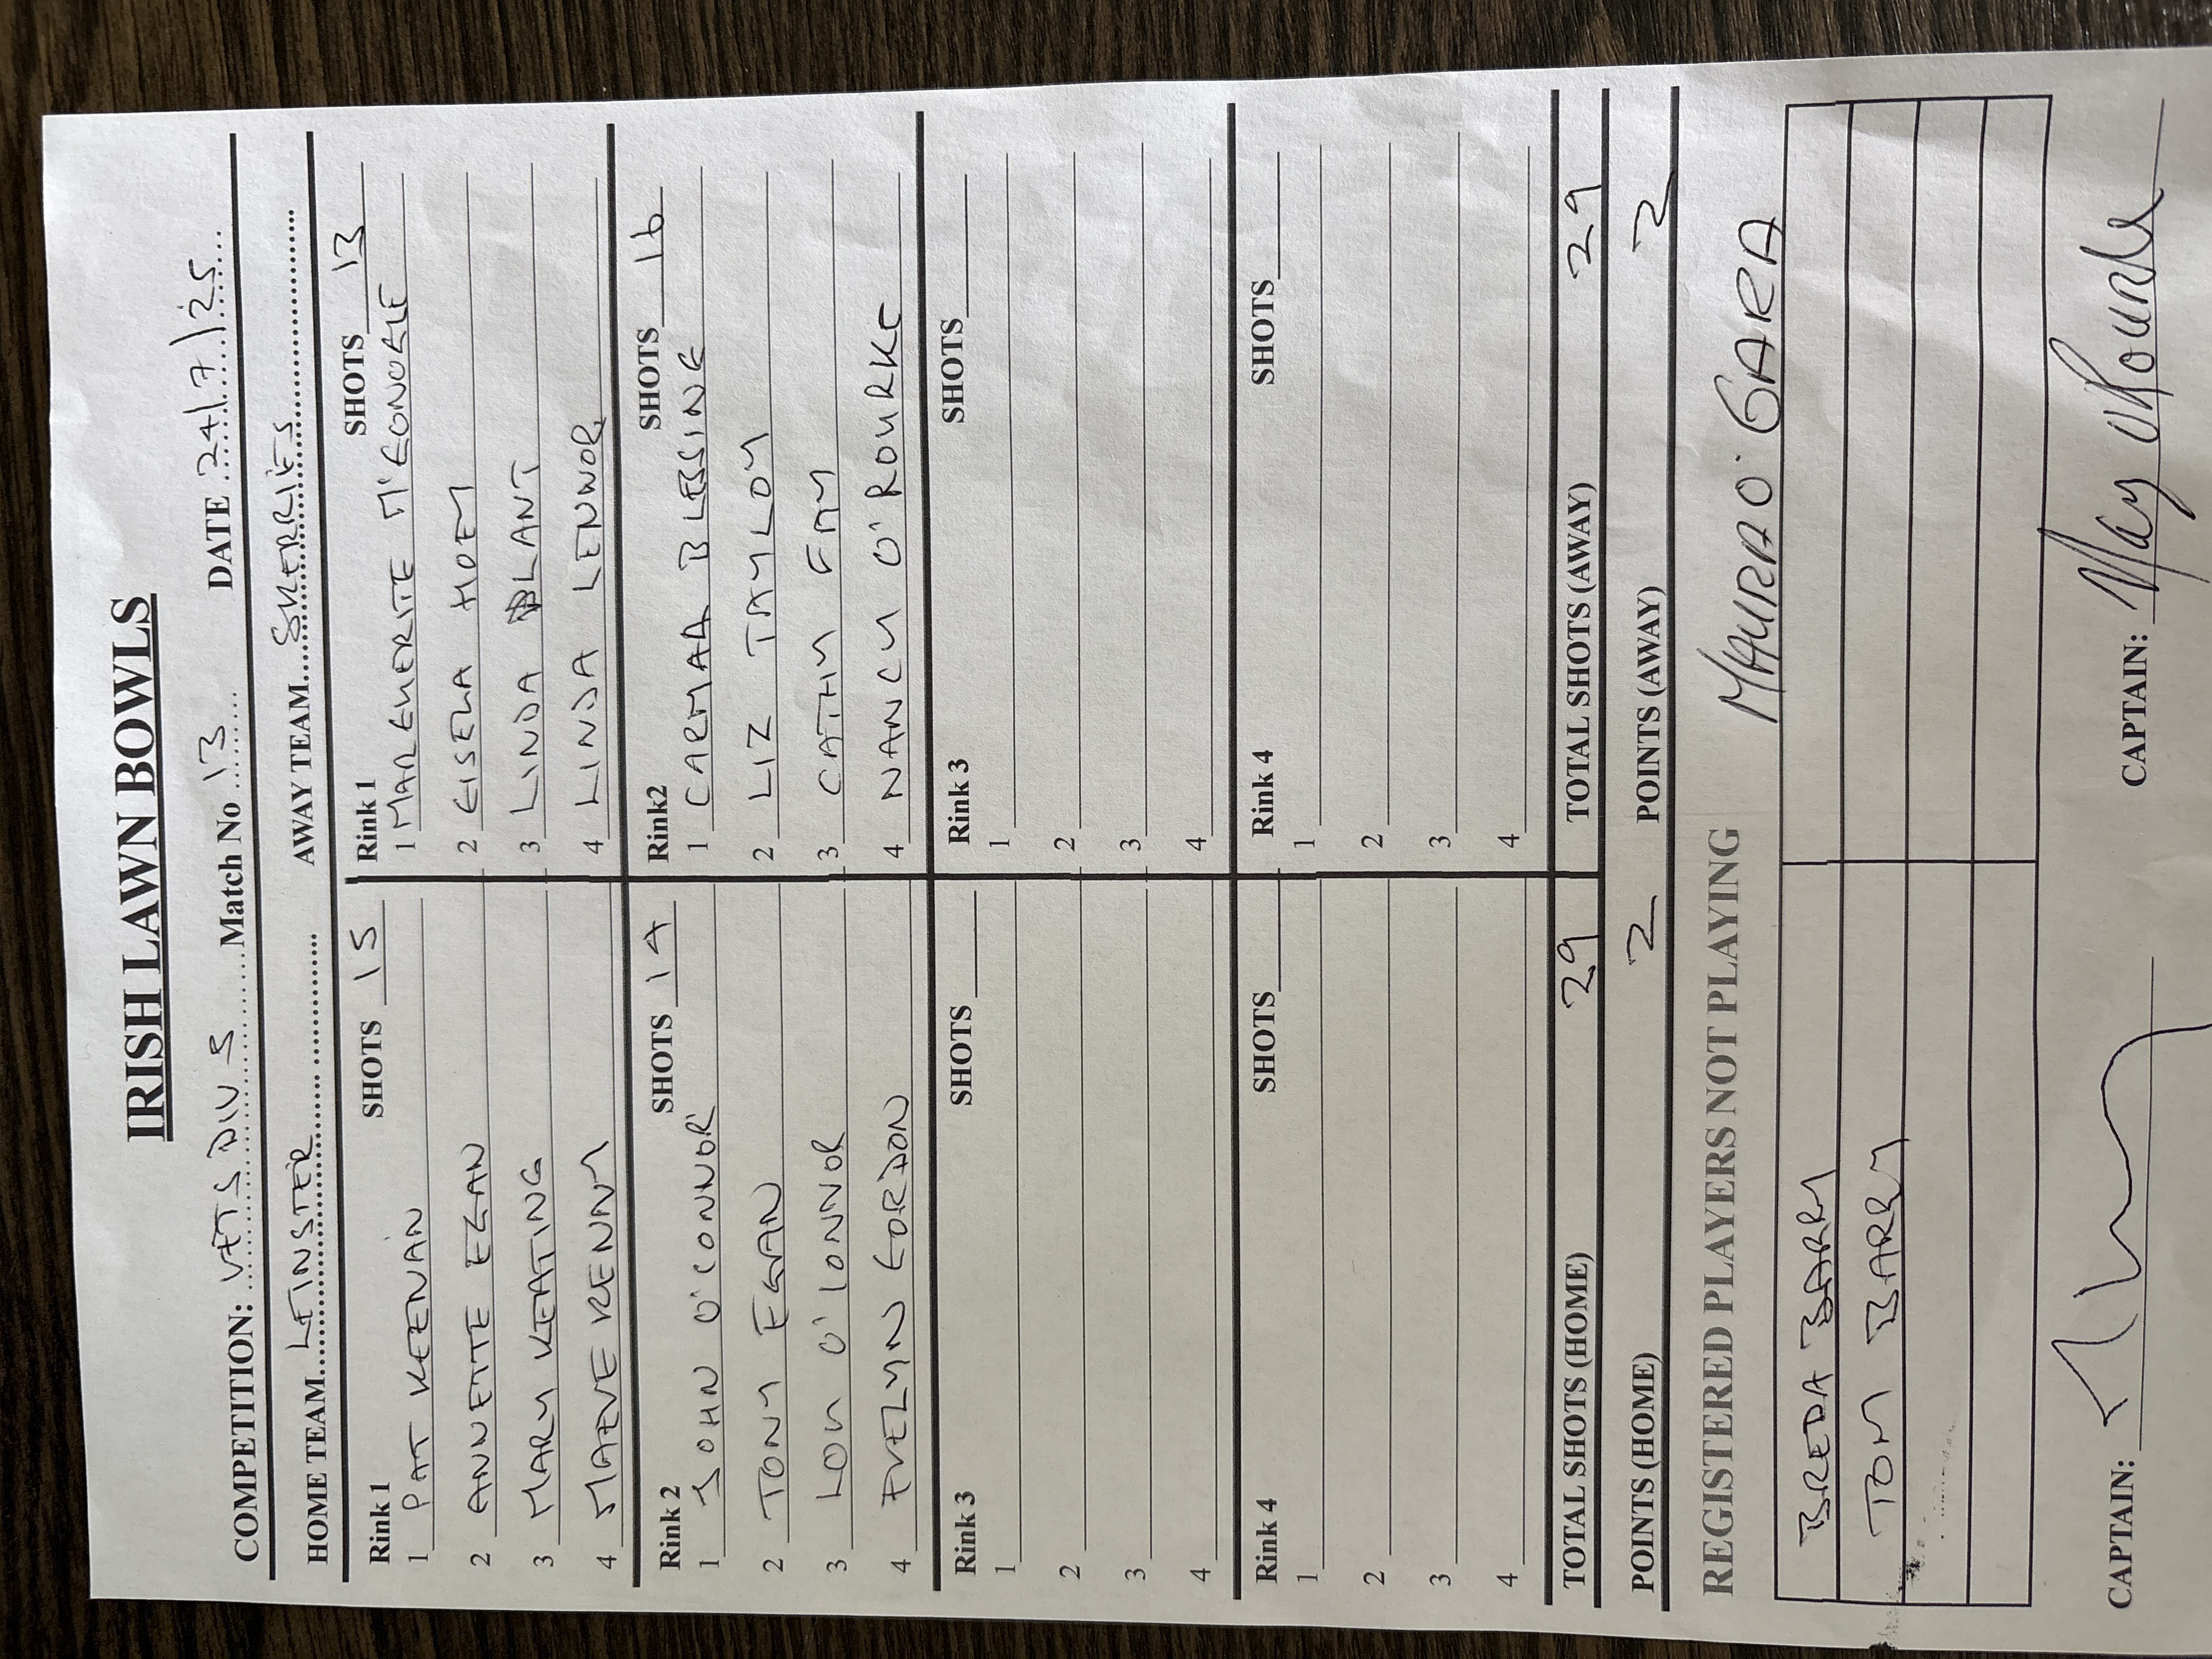 IRISH LAWN BOWLS
COMPETITION: VETS DIV 5 Match No 13 DATE 24/7/25
HOME TEAM LEINSTER AWAY TEAM SKERRIES
Rink 1 SHOTS 15 Rink 1 SHOTS 13
1 PAT KEENAN 1 MARGUERITE McGONAGLE
2 ANNETTE EGAN 2 GISELA HOEY
3 MARY KEATING 3 LINDA BLANT
4 MAEVE KENNY 4 LINDA LENNOR
Rink 2 SHOTS 14 Rink2 SHOTS 16
1 JOHN O'CONNOR 1 BLESSING
2 TONY EGAN 2 LIZ TAYLOY
3 LOU O'CONNOR 3 CATHY FAY
4 EVELYN GORDON 4 NANCY O'ROURKE
Rink 3 SHOTS Rink 3 SHOTS
1 1
2 2
3 3
4 4
Rink 4 SHOTS Rink 4 SHOTS
1 1
2 2
3 3
4 4
TOTAL SHOTS (HOME) 29 TOTAL SHOTS (AWAY) 29
POINTS (HOME) 2 POINTS (AWAY) 2
REGISTERED PLAYERS NOT PLAYING MAURA O'GARA
BREDA BARRY
TOM BARRY
CAPTAIN: CAPTAIN: May O'Rourke